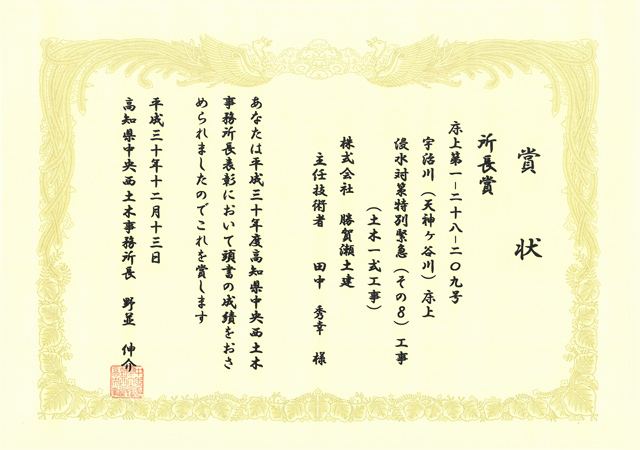 賞状
所長賞
床上第一-二十八-二〇九号
宇治川（天神ヶ谷川）床上
浸水対策特別緊急（その８）工事
（土木一式工事）
株式会社 勝賀瀬土建
主任技術者 田中 秀幸 様
あなたは平成三十年度高知県中央西土木
事務所長表彰において頭書の成績をおさ
められましたのでこれを賞します
平成三十年十二月十三日
高知県中央西土木事務所長 野並 伸介